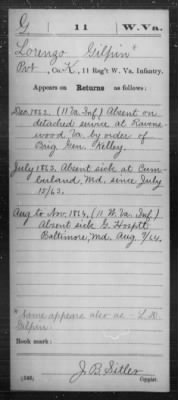 G | 11 | W.Va.
Lorenzo Gilpin*
Pvt, Co. K, 11 Reg't W. Va. Infantry.
Appears on Returns as follows:
Dec. 1862. (11 Va. Inf.) Absent on
detached service at Ravens-
wood Va by order of
Brig Gen. Kelley.
July 1863. Absent sick at Cum-
berland, Md. since July
15/63.
Aug to Nov. 1864. (11 W. Va. Inf.)
Absent sick G. Hospitl
Baltimore, Md. Aug 9/64.
* Name appears also as - L. D.
Gilpin.
Book mark:
J. B. Sitler
(546) Copyist.